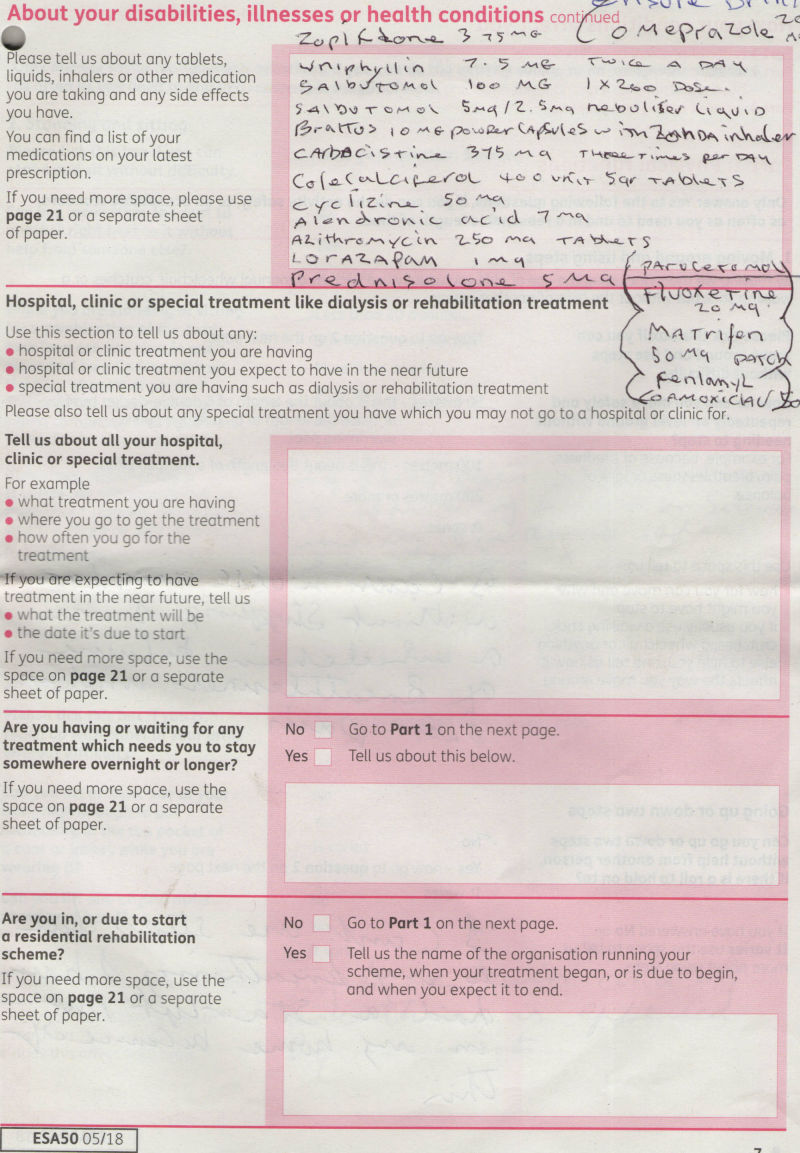 About your disabilities, illnesses or health conditions continued
Ensure Drin
Zopiklone 3 75 MG
( OMEPrAZOLE 20
Please tell us about any tablets,
liquids, inhalers or other medication
you are taking and any side effects
you have.
You can find a list of your
medications on your latest
prescription.
If you need more space, please use
page 21 or a separate sheet
of paper.
Uniphyllin 7.5 MG TWICE A DAY
SAlbuTOMOl 100 MG 1X200 Dose.
SAlbUTOMOl 5mg/2.5mg neboliser liquid
10 MG powder CAPsules with ZONDA inhaler
CArbOCISTine 375 mg THREE TIMES per DAY
ColeCalCiferol 400 unit TAbleTS
Cyclizine 50 mg
Alendronic acid 7 mg
AZithromycin 250 mg TAbleTS
LORAZAPAM 1 mg
Prednisolone 5 Mg
PAroceTomOl
FluoxeTine
20 mg.
MATrifen
50 Mg PATCH
FenlanyL
COAMOXICLAV 50
Hospital, clinic or special treatment like dialysis or rehabilitation treatment
Use this section to tell us about any:
• hospital or clinic treatment you are having
• hospital or clinic treatment you expect to have in the near future
• special treatment you are having such as dialysis or rehabilitation treatment
Please also tell us about any special treatment you have which you may not go to a hospital or clinic for.
Tell us about all your hospital,
clinic or special treatment.
For example
• what treatment you are having
• where you go to get the treatment
• how often you go for the
treatment
If you are expecting to have
treatment in the near future, tell us
• what the treatment will be
• the date it's due to start
If you need more space, use the
space on page 21 or a separate
sheet of paper.
Are you having or waiting for any
treatment which needs you to stay
somewhere overnight or longer?
If you need more space, use the
space on page 21 or a separate
sheet of paper.
No Go to Part 1 on the next page.
Yes Tell us about this below.
Are you in, or due to start
a residential rehabilitation
scheme?
If you need more space, use the
space on page 21 or a separate
sheet of paper.
No Go to Part 1 on the next page.
Yes Tell us the name of the organisation running your
scheme, when your treatment began, or is due to begin,
and when you expect it to end.
ESA50 05/18
7